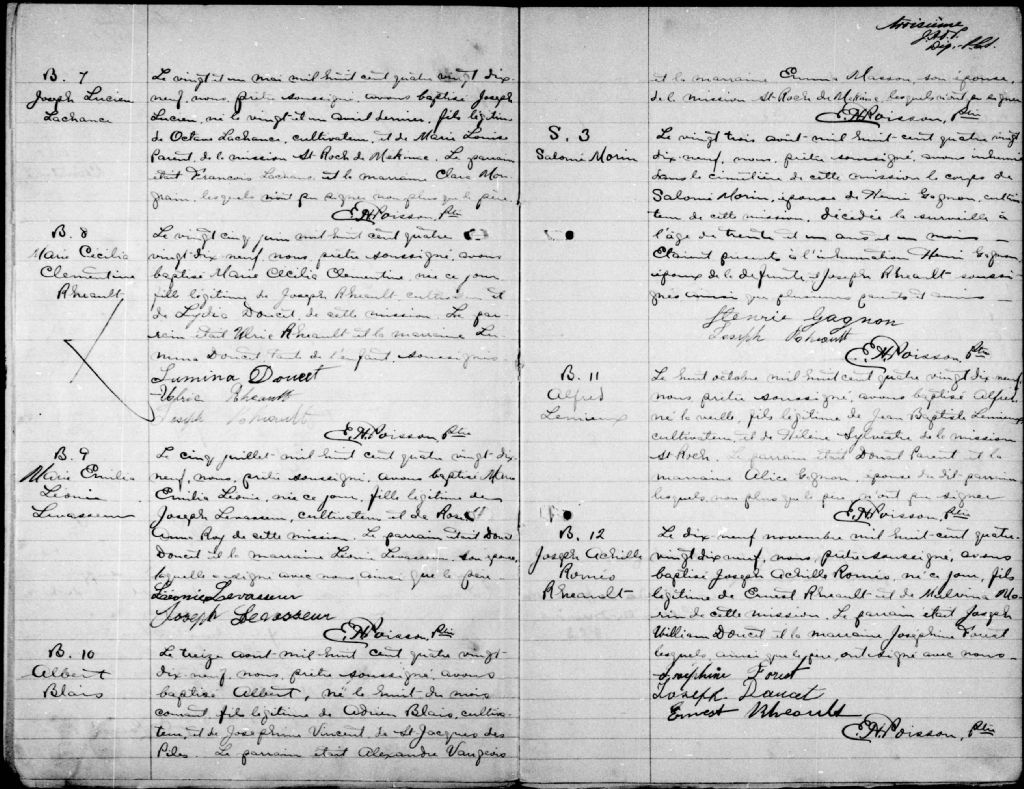 B. 7
Joseph Lucien
Lachance
Le vingt et un mai mil huit cent quatre vingt dix-
neuf, nous, prêtre soussigné, avons baptisé Joseph
Lucien, né le vingt et un avril dernier, fils légitime
de Octave Lachance, cultivateur, et de Marie Louise
Parent, de la mission St Roch de Mekinac. Le parrain
était Francois Lachance et la marraine Clara Mon-
grain, lesquels n'ont pu signer non plus que le père.
E.H. Poisson, Ptre
B. 8
Marie Cécilia
Clementine
Rheault
Le vingt cinq juin mil huit cent quatre
vingt-dix-neuf, nous, prêtre soussigné, avons
baptisé Marie Cécilia Clementine, née ce jour,
fille légitime de Joseph Rheault, cultivateur et
de Lydia Doucet, de cette mission. Le par-
rain était Ulric Rheault et la marraine Lu-
mina Doucet tante de l'enfant soussignés
Lumina Doucet
Ulric Rheault
Joseph Rheault
E.H. Poisson, Ptre
B. 9
Marie Emilia
Léonie
Levasseur
Le cinq juillet mil huit cent quatre vingt-dix-
neuf, nous, prêtre soussigné, avons baptisé Marie
Emilia Léonie, née ce jour, fille légitime de
Joseph Levasseur, cultivateur et de Rose
Anna Roy de cette mission. Le parrain était
Doucet et la marraine Léonie Levasseur, son épouse,
laquelle a signé avec nous ainsi que le père.
Léonie Levasseur
Joseph Levasseur
E.H. Poisson, Ptre
B. 10
Albert
Blais
Le treize août mil huit cent quatre vingt-
dix-neuf, nous, prêtre soussigné, avons
baptisé Albert, né le huit du mois
courant, fils légitime de Adrien Blais, cultiva-
teur, et de Josephine Vincent, de St Jacques des
Piles. Le parrain était Alexandre Vaugeois
troisième
et la marraine Emma Masson, son épouse,
de la mission St Roch de Mekinac, lesquels n'ont pu signer
E.H. Poisson, Ptre
S. 3
Salomé Morin
Le vingt trois août mil huit cent quatre vingt
dix-neuf, nous, prêtre soussigné, avons inhumé
dans le cimetière de cette mission le corps de
Salomé Morin, épouse de Henri Gagnon, cultiva-
teur de cette mission, décédée la surveille à
l'âge de trente et un ans et un mois —
Etaient présents à l'inhumation Henri Gagnon
époux de la défunte et Joseph Rheault soussi-
gnés ainsi que plusieurs parents et amis —
Henrie Gagnon
Joseph Rheault
E.H. Poisson, Ptre
B. 11
Alfred
Lemieux
Le huit octobre mil huit cent quatre vingt dix neuf,
nous, prêtre soussigné, avons baptisé Alfred
né la veille, fils légitime de Jean Baptiste Lemieux
cultivateur et de Hélène Sylvestre de la mission
St Roch. Le parrain était Donat Parent et la
marraine Alice Gagnon, épouse du dit parrain
lesquels, non plus que le père, n'ont pu signer
E.H. Poisson, Ptre
B. 12
Joseph Achille
Roméo
Rheault
Le dix neuf novembre mil huit cent quatre-
vingt dix neuf, nous, prêtre soussigné, avons
baptisé Joseph Achille Roméo, né ce jour, fils
légitime de Ernest Rheault et de Malvina Mo-
rin de cette mission. Le parrain était Joseph
William Doucet et la marraine Josephine Forest
lesquels, ainsi que le père, ont signé avec nous
Joséphine Forest
Joseph Doucet
Ernest Rheault
E.H. Poisson, Ptre